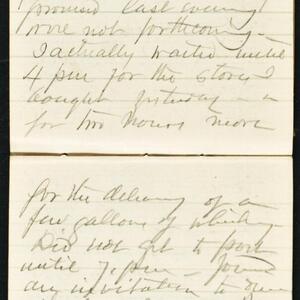 promised last evening
were not forthcoming -
I actually waited until
4 pm for the stores I
bought yesterday - &
for two hours more
for the delivery of a
few gallons of whisky -
Did not get to post
until 7 pm - found
an invitation to dine